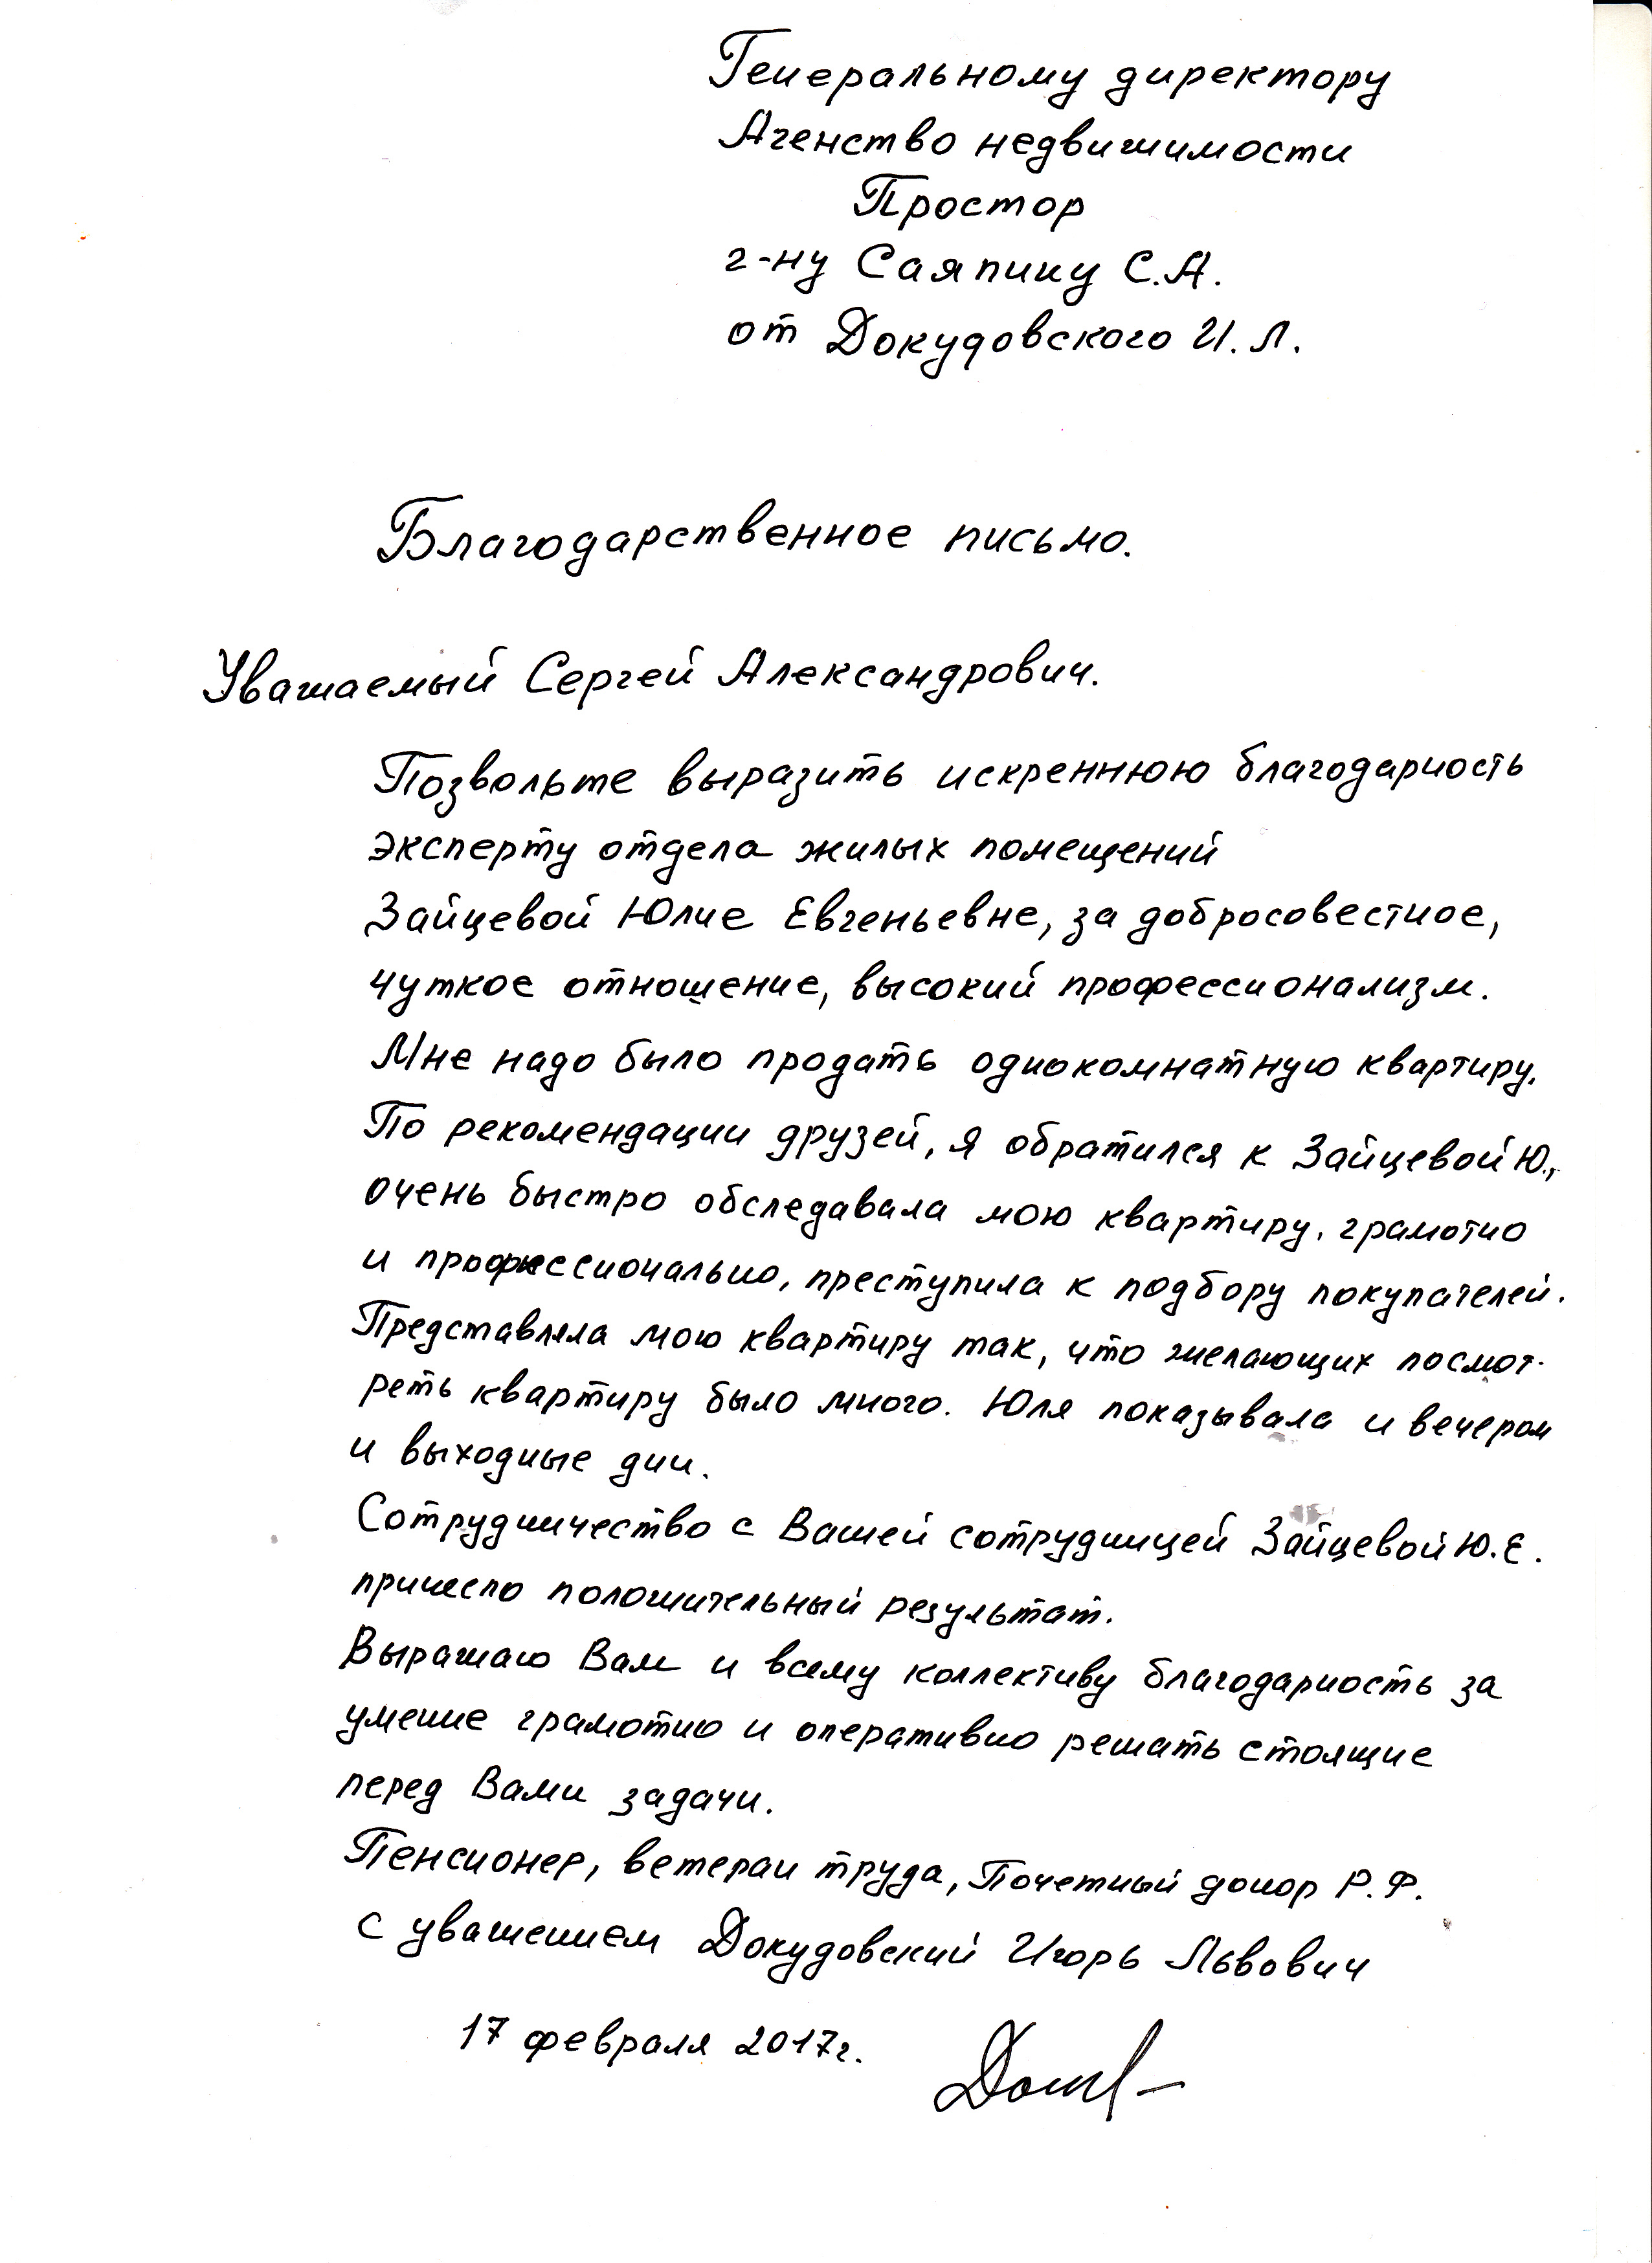 Генеральному директору
Агенство недвижимости
Простор
г-ну Саяпину С.А.
от Докудовского И.Л.
Благодарственное письмо.
Уважаемый Сергей Александрович.
Позвольте выразить искреннюю благодарность
эксперту отдела жилых помещений
Зайцевой Юлие Евгеньевне, за добросовестное,
чуткое отношение, высокий профессионализм.
Мне надо было продать однокомнатную квартиру.
По рекомендации друзей, я обратился к Зайцевой Ю.,
очень быстро обследавала мою квартиру, грамотно
и профессионально, преступила к подбору покупателей.
Представляла мою квартиру так, что желающих посмот-
реть квартиру было много. Юля показывала и вечером
и выходные дни.
Сотрудничество с Вашей сотрудницей Зайцевой Ю.Е.
принесло положительный результат.
Выражаю Вам и всему коллективу благодарность за
умение грамотно и оперативно решать стоящие
перед Вами задачи.
Пенсионер, ветеран труда, Почетный донор Р.Ф.
с уважением Докудовский Игорь Львович
17 февраля 2017г.